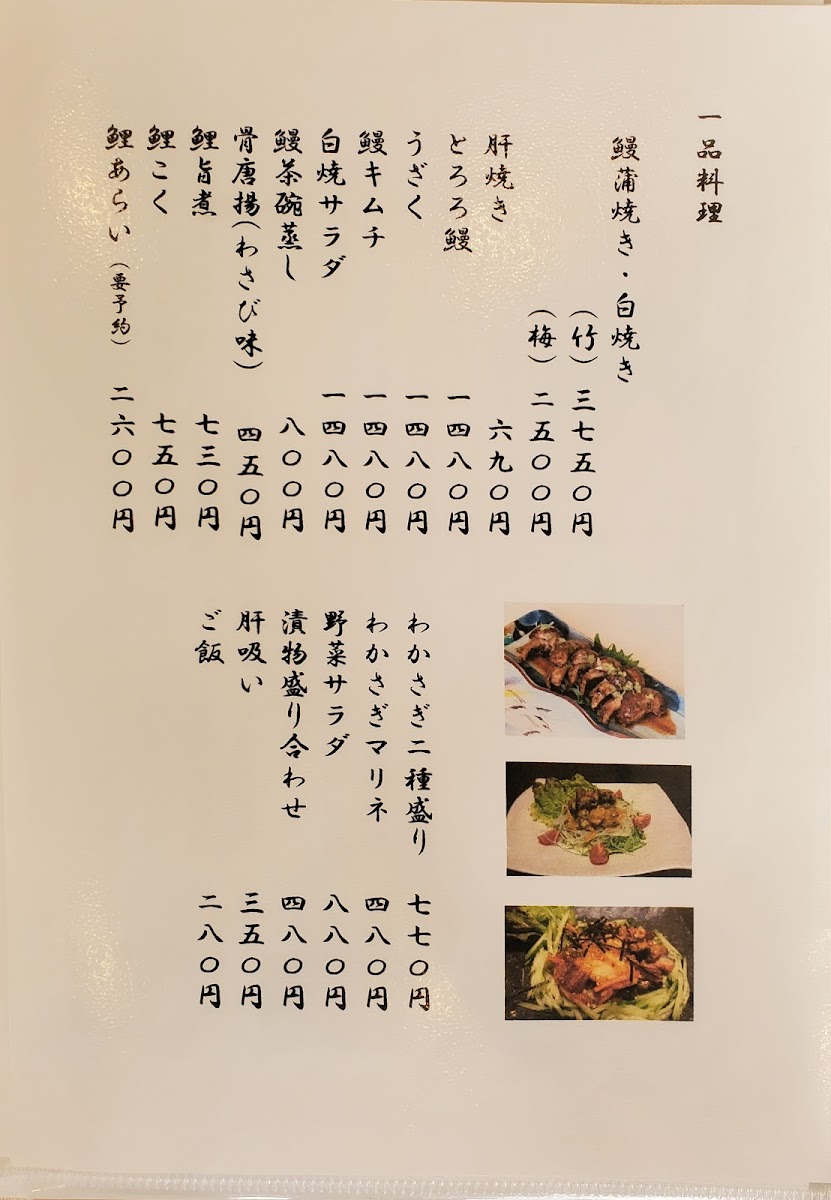 一品料理
鰻蒲焼き・白焼き
（竹） 三七五〇円
（梅） 二五〇〇円
肝焼き 六九〇円
とろろ鰻 一四八〇円
うざく 一四八〇円
鰻キムチ 一四八〇円
白焼サラダ 一四八〇円
鰻茶碗蒸し 八〇〇円
骨唐揚（わさび味） 四五〇円
鯉旨煮 七三〇円
鯉こく 七五〇円
鯉あらい（要予約） 二六〇〇円
わかさぎ二種盛り 七七〇円
わかさぎマリネ 四八〇円
野菜サラダ 八八〇円
漬物盛り合わせ 四八〇円
肝吸い 三五〇円
ご飯 二八〇円